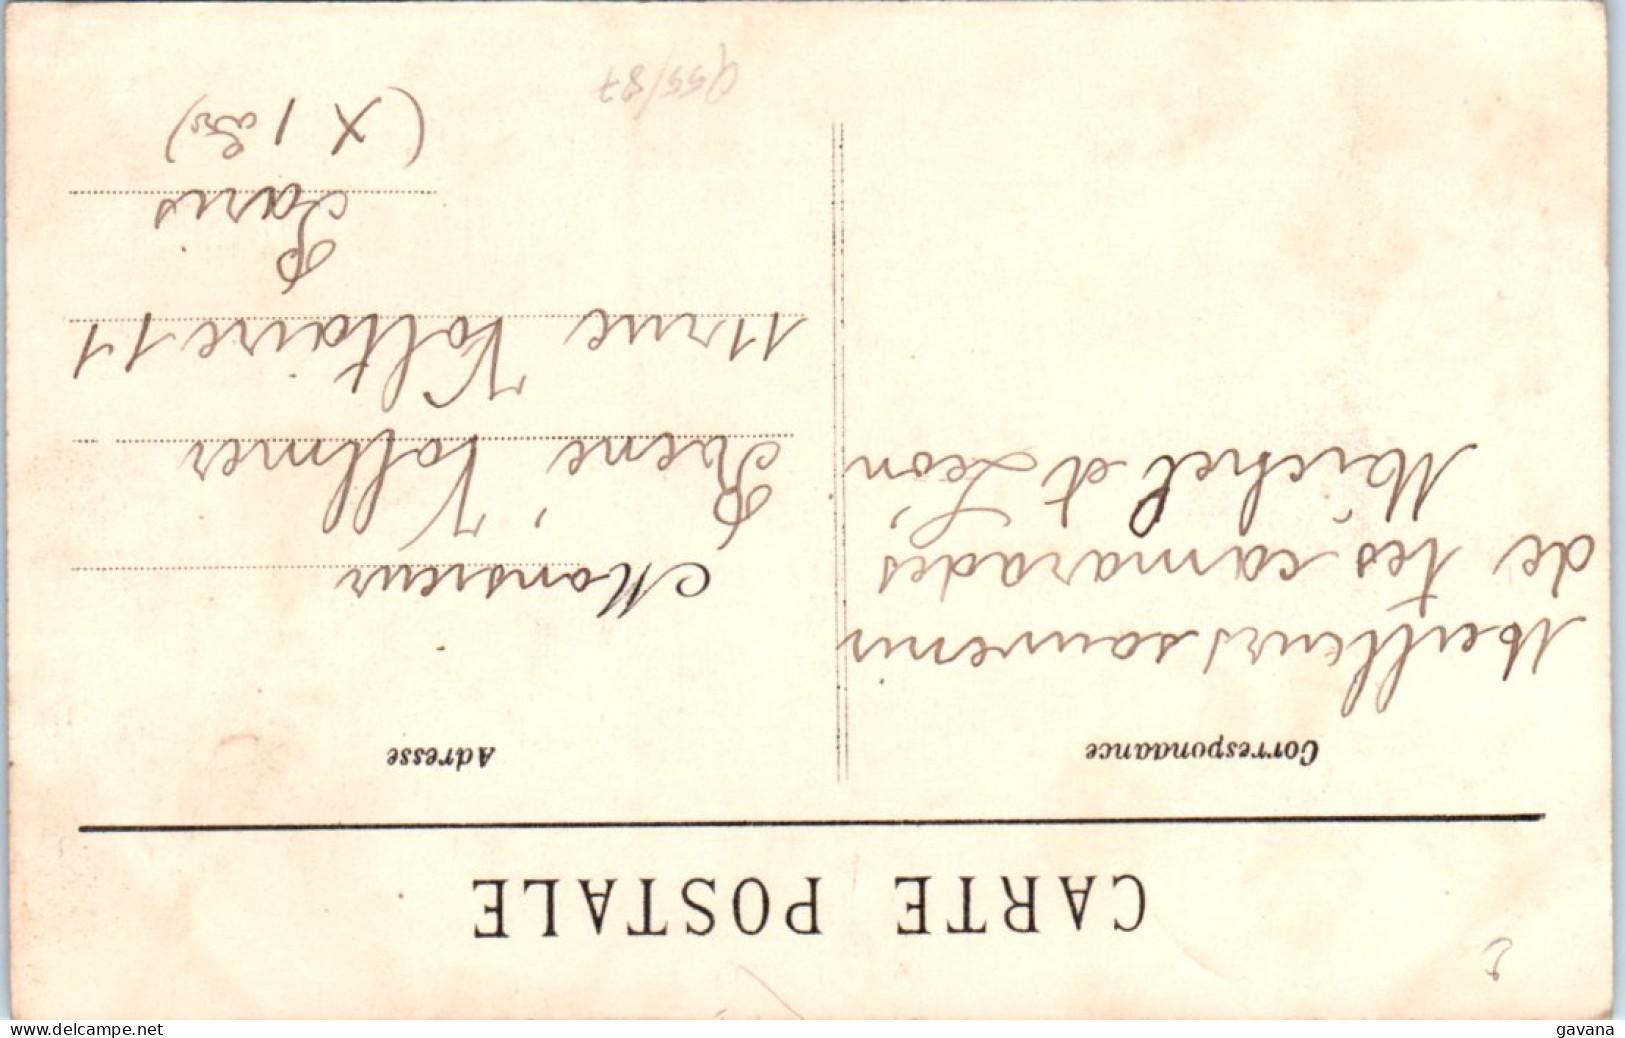 CARTE POSTALE
Correspondance
Meilleurs souvenir
de tes camarades,
Michel et Léon
Adresse
Monsieur
René Vollmer
11 rue Voltaire 11
Paris
(X I
delcampe.net
gavana